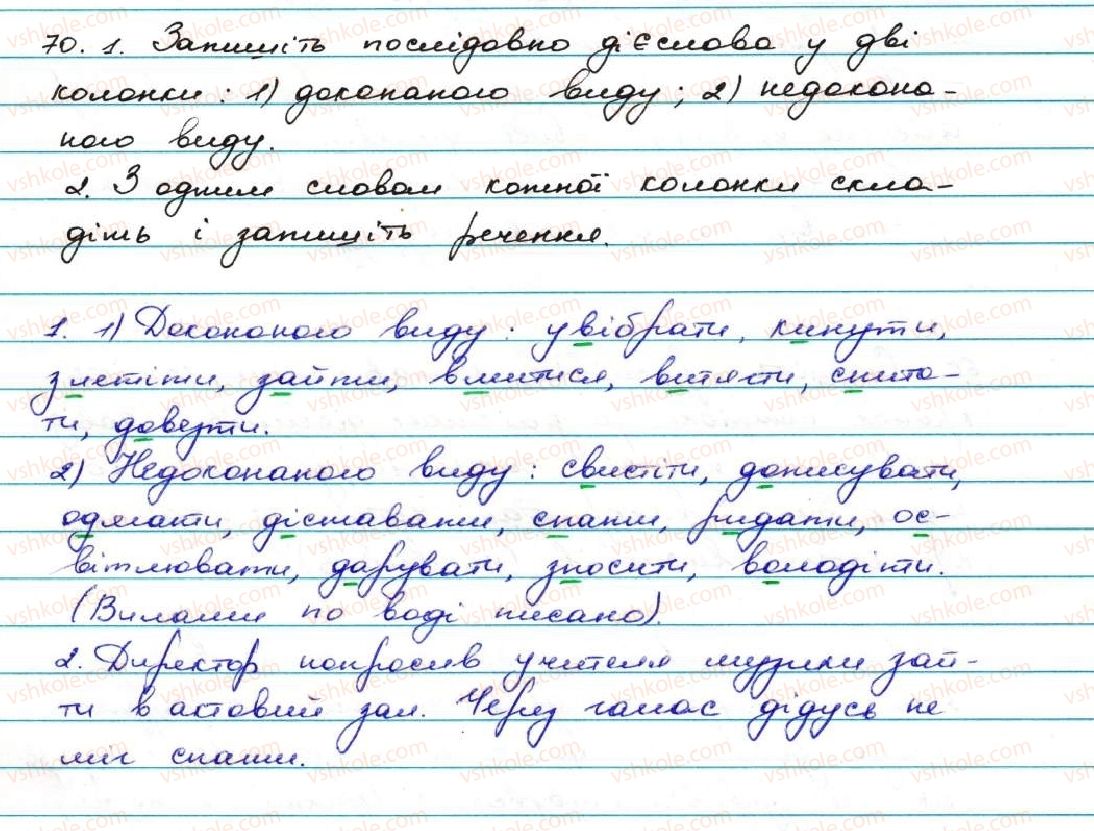 70. 1. Запишіть послідовно дієслова у дві
колонки: 1) доконаного виду; 2) недокона-
ного виду.
2. З одним словом кожної колонки скла-
діть і запишіть речення.
1. 1) Доконаного виду: увібрати, кинути,
злетіти, зайти, вмитися, витягти, спита-
ти, довезти.
2) Недоконаного виду: свистіти, дописувати,
одягати, діставати, спати, ридати, ос-
вітлювати, дарувати, зносити, володіти.
(Вилами по воді писано).
2. Директор попросив учителя музики зай-
ти в актовий зал. Через галас дідусь не
міг спати.